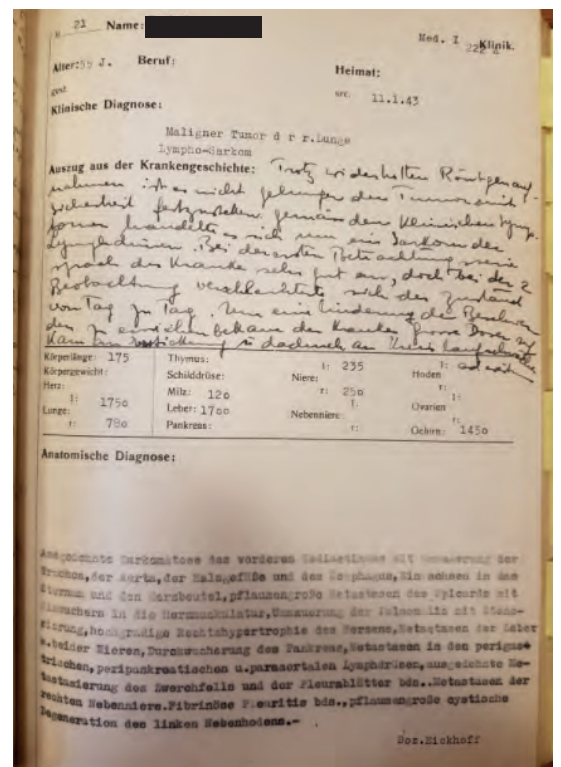 23 Name:
Med. I 222 Klinik.
Alter: 55 J. Beruf:
Heimat:
gest.
11.1.43
Klinische Diagnose:
Maligner Tumor d r r.Lunge
Lympho-Sarkom
Auszug aus der Krankengeschichte: Trotz wiederholten Röntgenauf-
nahmen ist es nicht gelungen den Tumor mit
Sicherheit festzustellen. gemäss den klinischen Symp-
tomen handelte es sich um ein Sarkom der
Lymphdrüsen. Bei der ersten
sprach der Kranke sehr gut an, doch bei der 2
Beobachtung verschlechterte sich der Zustand
von Tag zu Tag. Um eine Linderung der Beschwerden
zu erreichen bekam der Kranke
kam
Körperlänge: 175 Thymus: l: 235 l:
Körpergewicht: Schilddrüse: Niere: Hoden
Herz: Milz: 120 r: 250 r:
l: 1750 Leber: 1700 l: l:
Lunge: Nebenniere: Ovarien
r: 780 Pankreas: r: r:
Gehirn: 1450
Anatomische Diagnose:
Ausgedehnte Sarkomatose des vorderen Mediastinums mit der
der Aorta, der Halsgefäße und des Ösophagus, in das
Sternum und den Herzbeutel, pflaumengroße Metastasen des Epicards mit
in die Herzmuskulatur, Ummauerung der mit
hochgradige Rechtshypertrophie des Herzens, Metastasen der Leber
u. beider Nieren, Durchwucherung des Pankreas, Metastasen in den perigast-
trischen, peripankreatischen u. paraaortalen Lymphdrüsen, ausgedehnte Me-
tastasierung des Zwerchfells und der Pleurablätter bds.. Metastasen der
rechten Nebenniere. Fibrinöse Pleuritis bds., pflaumengroße cystische
Degeneration des linken Nebenhodens.-
Doz. Eickhoff